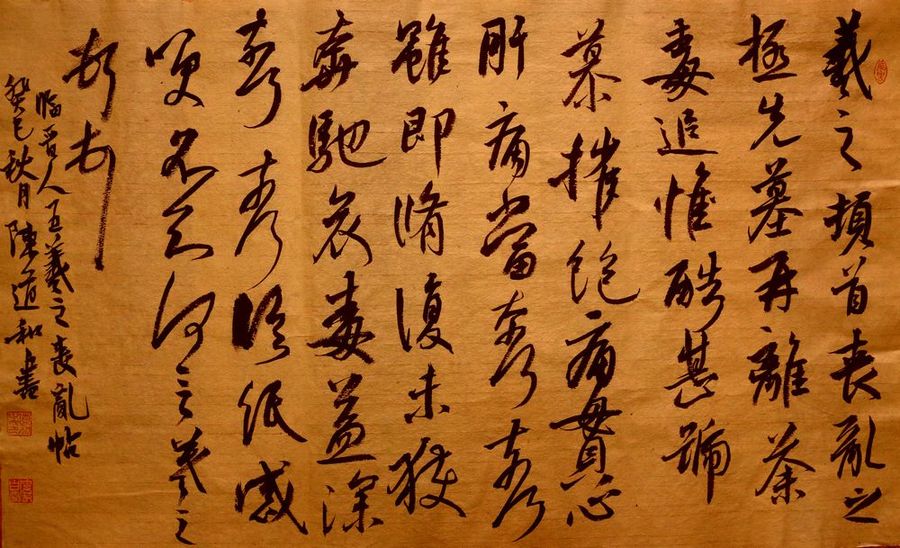 羲之頓首喪亂之
極先墓再離荼
毒追惟酷甚號
慕摧絕痛貫心
肝痛當奈何奈何
雖即脩復未獲
奔馳哀毒益深
奈何奈何臨紙感
哽不知何言羲之
頓首
臨晉人王羲之喪亂帖
癸巳秋月陳道和書